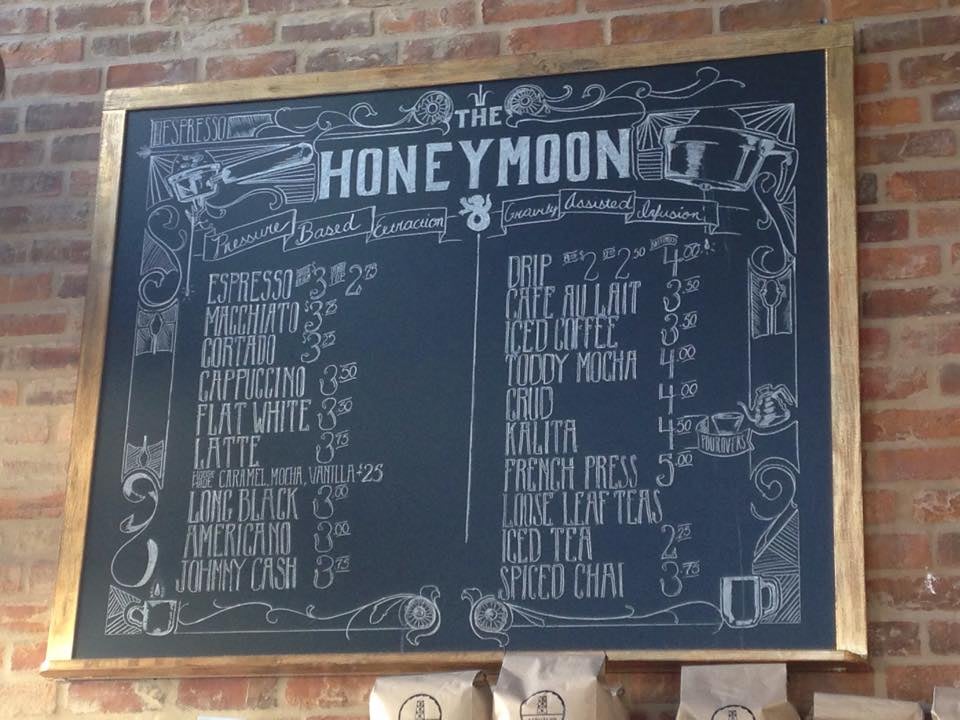 ESPRESSO
THE
HONEYMOON
Pressure Based Extraction
Gravity Assisted Infusion
ESPRESSO 3 2.75
MACCHIATO $3.25
CORTADO 3.25
CAPPUCCINO 3.50
FLAT WHITE 3.50
LATTE 3.75
CARAMEL, MOCHA, VANILLA +.25
LONG BLACK 3.00
AMERICANO 3.00
JOHNNY CASH 3.75
DRIP $2 2.50 4.00
CAFE AU LAIT 3.50
ICED COFFEE 3.50
TODDY MOCHA 4.00
CRUD 4.00
KALITA 4.50
POUROVERS
FRENCH PRESS 5.00
LOOSE LEAF TEAS
ICED TEA 2.25
SPICED CHAI 3.75